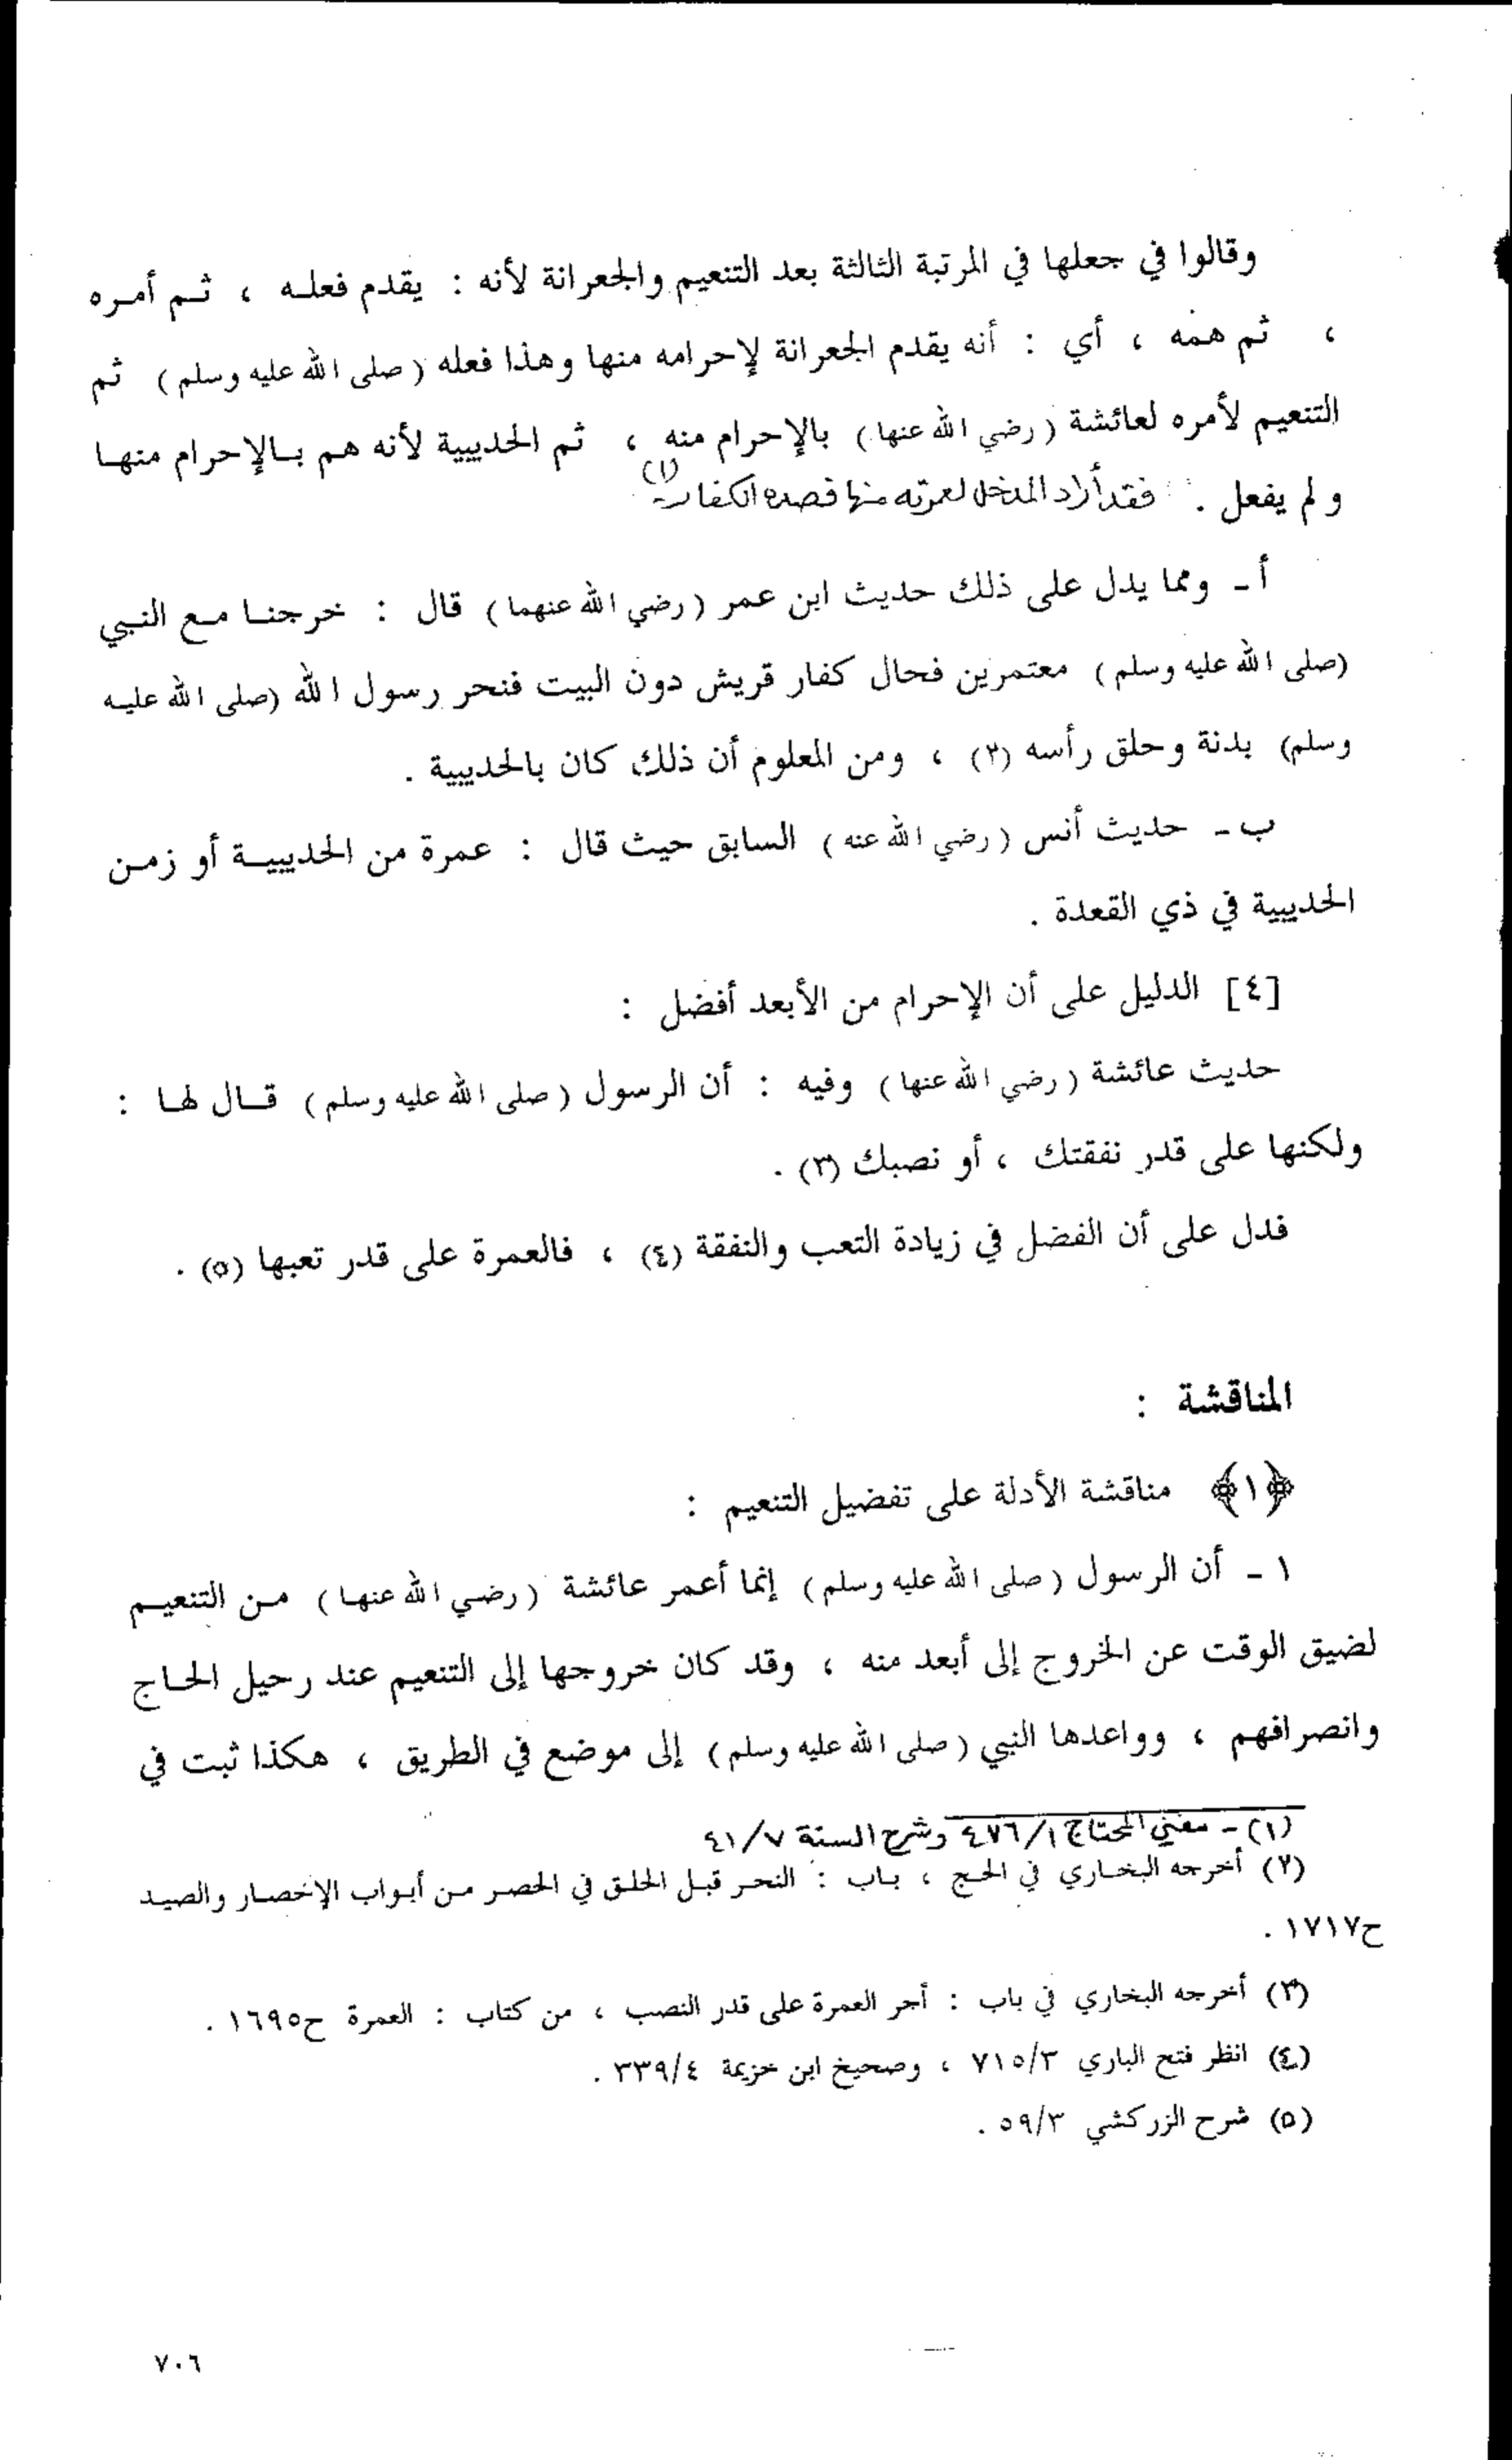 وقالوا في جعلها في المرتبة الثالثة بعد التنعيم والجعرانة لأنه : يقدم فعله ، ثم أمره
، ثم همه ، أي : أنه يقدم الجعرانة لإحرامه منها وهذا فعله ( صلى الله عليه وسلم ) ثم
التنعيم لأمره لعائشة ( رضي الله عنها ) بالإحرام منه ، ثم الحديبية لأنه هم بالإحرام منها
و لم يفعل . فقد أراد المدخل لعمرته منها فصده الكفار (١)
أ ـ ومما يدل على ذلك حديث ابن عمر ( رضي الله عنهما ) قال : خرجنا مع النبي
(صلى الله عليه وسلم ) معتمرين فحال كفار قريش دون البيت فنحر رسول الله (صلى الله عليه
وسلم) بدنة وحلق رأسه (٢) ، ومن المعلوم أن ذلك كان بالحديبية .
ب ـ حديث أنس ( رضي الله عنه ) السابق حيث قال : عمرة من الحديبية أو زمن
الحديبية في ذي القعدة .
[٤] الدليل على أن الإحرام من الأبعد أفضل :
حديث عائشة ( رضي الله عنها ) وفيه : أن الرسول ( صلى الله عليه وسلم ) قال لها :
ولكنها على قدر نفقتك ، أو نصبك (٣) .
فدل على أن الفضل في زيادة التعب والنفقة (٤) ، فالعمرة على قدر تعبها (٥) .
المناقشة :
﴿١﴾ مناقشة الأدلة على تفضيل التنعيم :
١ ـ أن الرسول ( صلى الله عليه وسلم ) إنما أعمر عائشة ( رضي الله عنها ) من التنعيم
لضيق الوقت عن الخروج إلى أبعد منه ، وقد كان خروجها إلى التنعيم عند رحيل الحاج
وانصرافهم ، وواعدها النبي ( صلى الله عليه وسلم ) إلى موضع في الطريق ، هكذا ثبت في
(١) ـ مغني المحتاج ٤٧٦/١ وشرح السنة ٤١/٧
(٢) أخرجه البخاري في الحج ، باب : النحر قبل الحلق في الحصر من أبواب الإخصار والصيد
ح١٧١٧ .
(٣) أخرجه البخاري في باب : أجر العمرة على قدر النصب ، من كتاب : العمرة ح١٦٩٥ .
(٤) انظر فتح الباري ٧١٥/٣ ، وصحيح ابن خزيمة ٣٣٩/٤ .
(٥) شرح الزركشي ٥٩/٣ .
٧٠٦